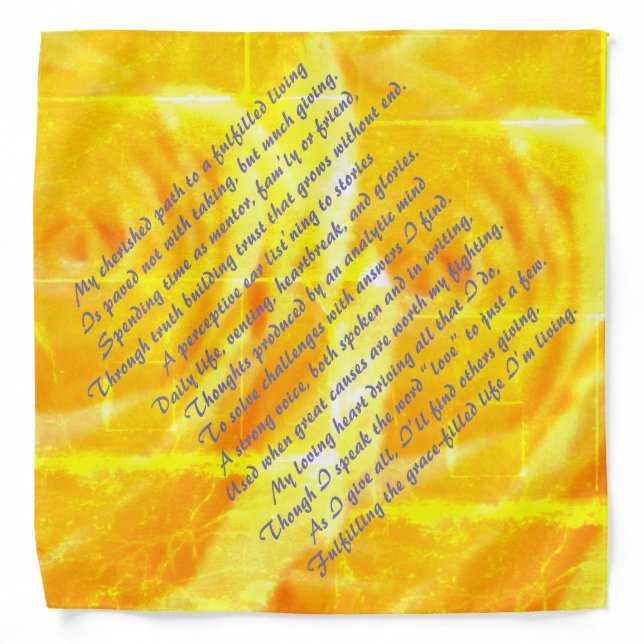 My cherished path to a fulfilled living
Is paved not with taking, but much giving.
Spending time as mentor, fam'ly or friend,
Through truth building trust that grows without end.
A perceptive ear list'ning to stories
Daily life, venting, heartbreak, and glories.
Thoughts produced by an analytic mind
To solve challenges with answers I find.
A strong voice, both spoken and in writing,
Used when great causes are worth my fighting.
My loving heart driving all that I do,
Though I speak the word "love" to just a few.
As I give all, I'll find others giving,
Fulfilling the grace-filled life I'm living.